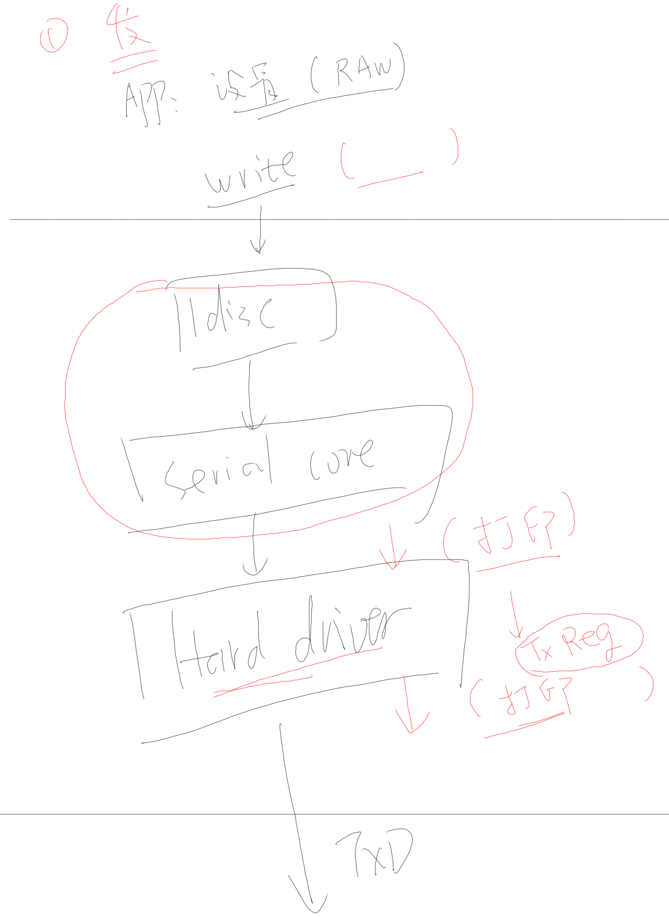 ① 发
APP: 设置 (RAW)
write ( )
ldisc
serial core
(打印)
Hard driver
Tx Reg
(打印 )
TxD